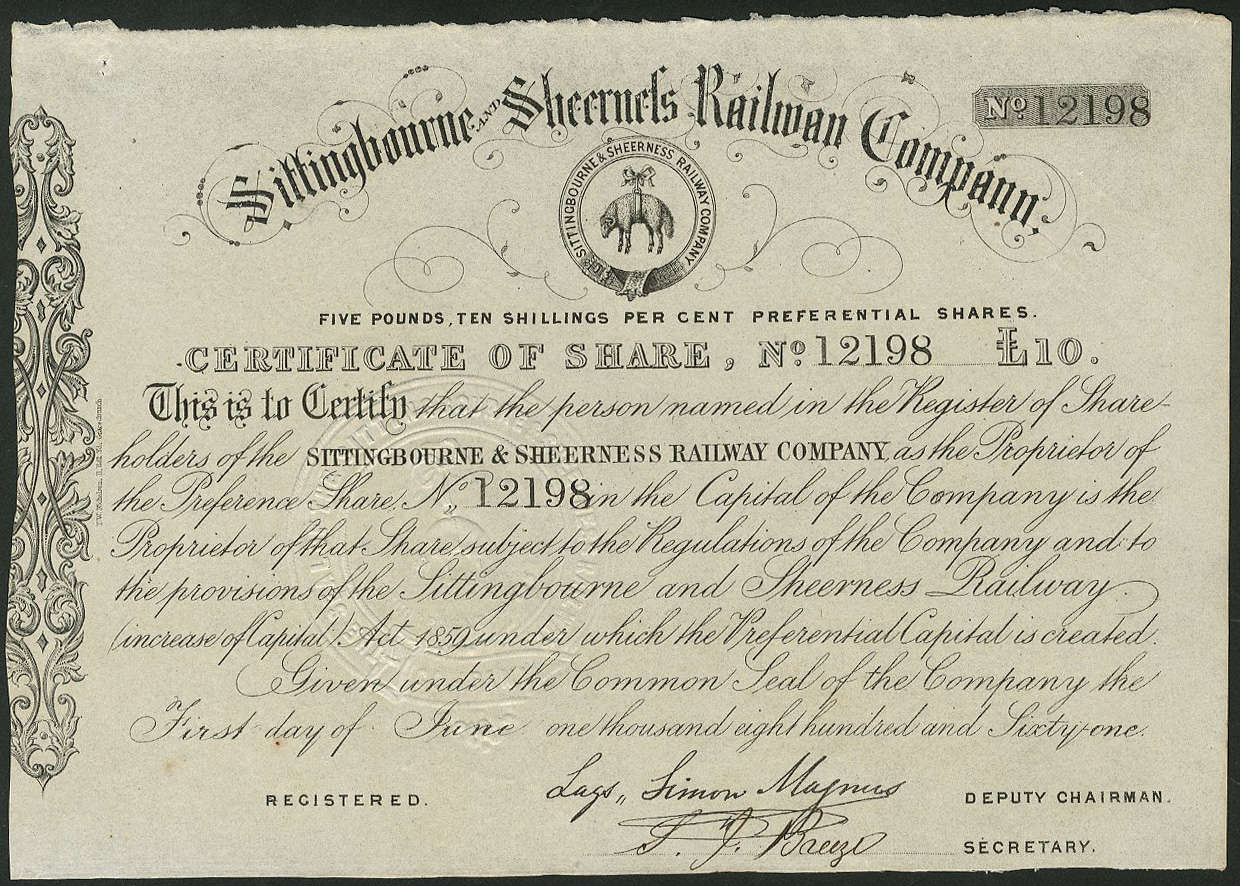 Sittingbourne AND Sheerness Railway Company.
No 12198
SITTINGBOURNE & SHEERNESS RAILWAY COMPANY
FIVE POUNDS, TEN SHILLINGS PER CENT PREFERENTIAL SHARES.
CERTIFICATE OF SHARE, No. 12198 £10.
This is to Certify that the person named in the Register of Share-
holders of the SITTINGBOURNE & SHEERNESS RAILWAY COMPANY as the Proprietor of
the Preference Share, No. 12198 in the Capital of the Company is the
Proprietor of that Share, subject to the Regulations of the Company and to
the provisions of the Sittingbourne and Sheerness Railway
(increase of Capital) Act 1859 under which the Preferential Capital is created.
Given under the Common Seal of the Company the
First day of June one thousand eight hundred and Sixty-one.
REGISTERED.
Simon Magnus
DEPUTY CHAIRMAN.
SECRETARY.